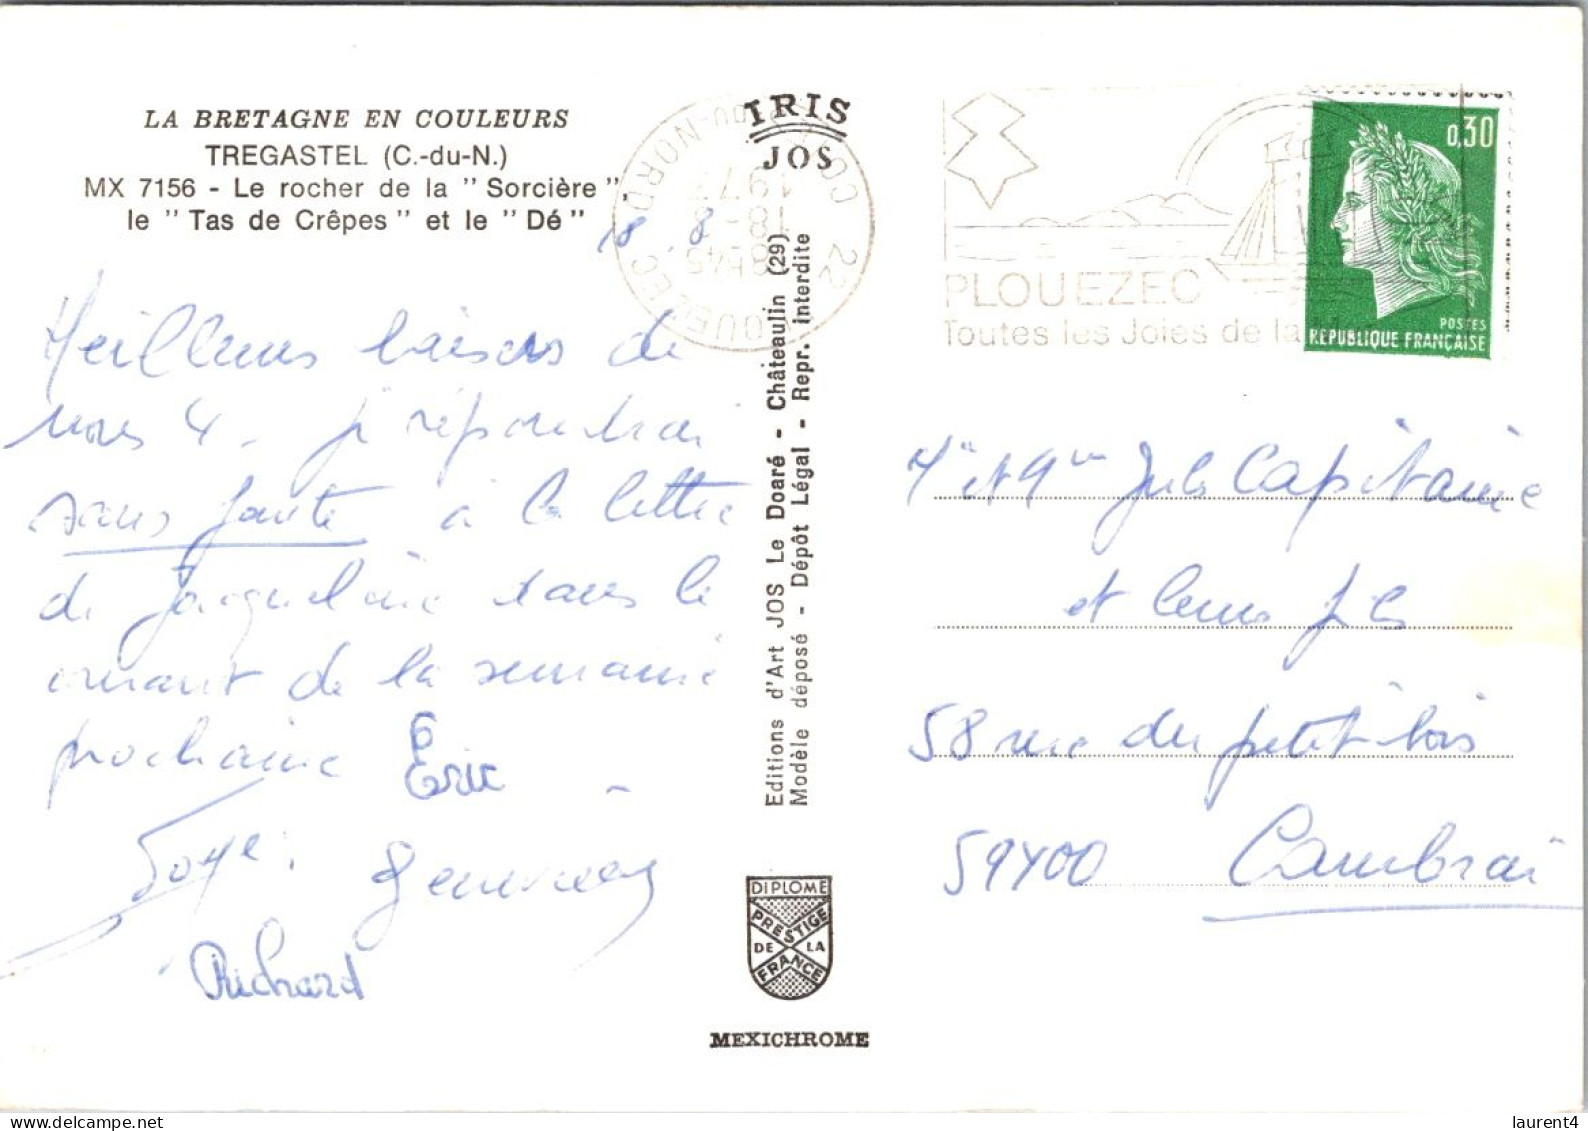 LA BRETAGNE EN COULEURS
TREGASTEL (C.-du-N.)
MX 7156 - Le rocher de la " Sorcière ",
le " Tas de Crêpes " et le " Dé "
18.8
Meilleurs baisers de
nous 4. je répondrai
sans faute à la lettre
de Jacqueline dans le
courant de la semaine
prochaine
Eric
Richard
IRIS
JOS
Editions d'Art JOS Le Doaré - Châteaulin (29)
Modèle déposé - Dépôt Légal - Repr. interdite
DIPLOME
PRESTIGE
DE LA
FRANCE
MEXICHROME
22
18-8
PLOUEZEC
Toutes les Joies de la
0,30
POSTES
REPUBLIQUE FRANÇAISE
Mr et Mme Jules Capitaine
et leurs fils
58 rue du petit bois
59400 Cambrai
laurent4